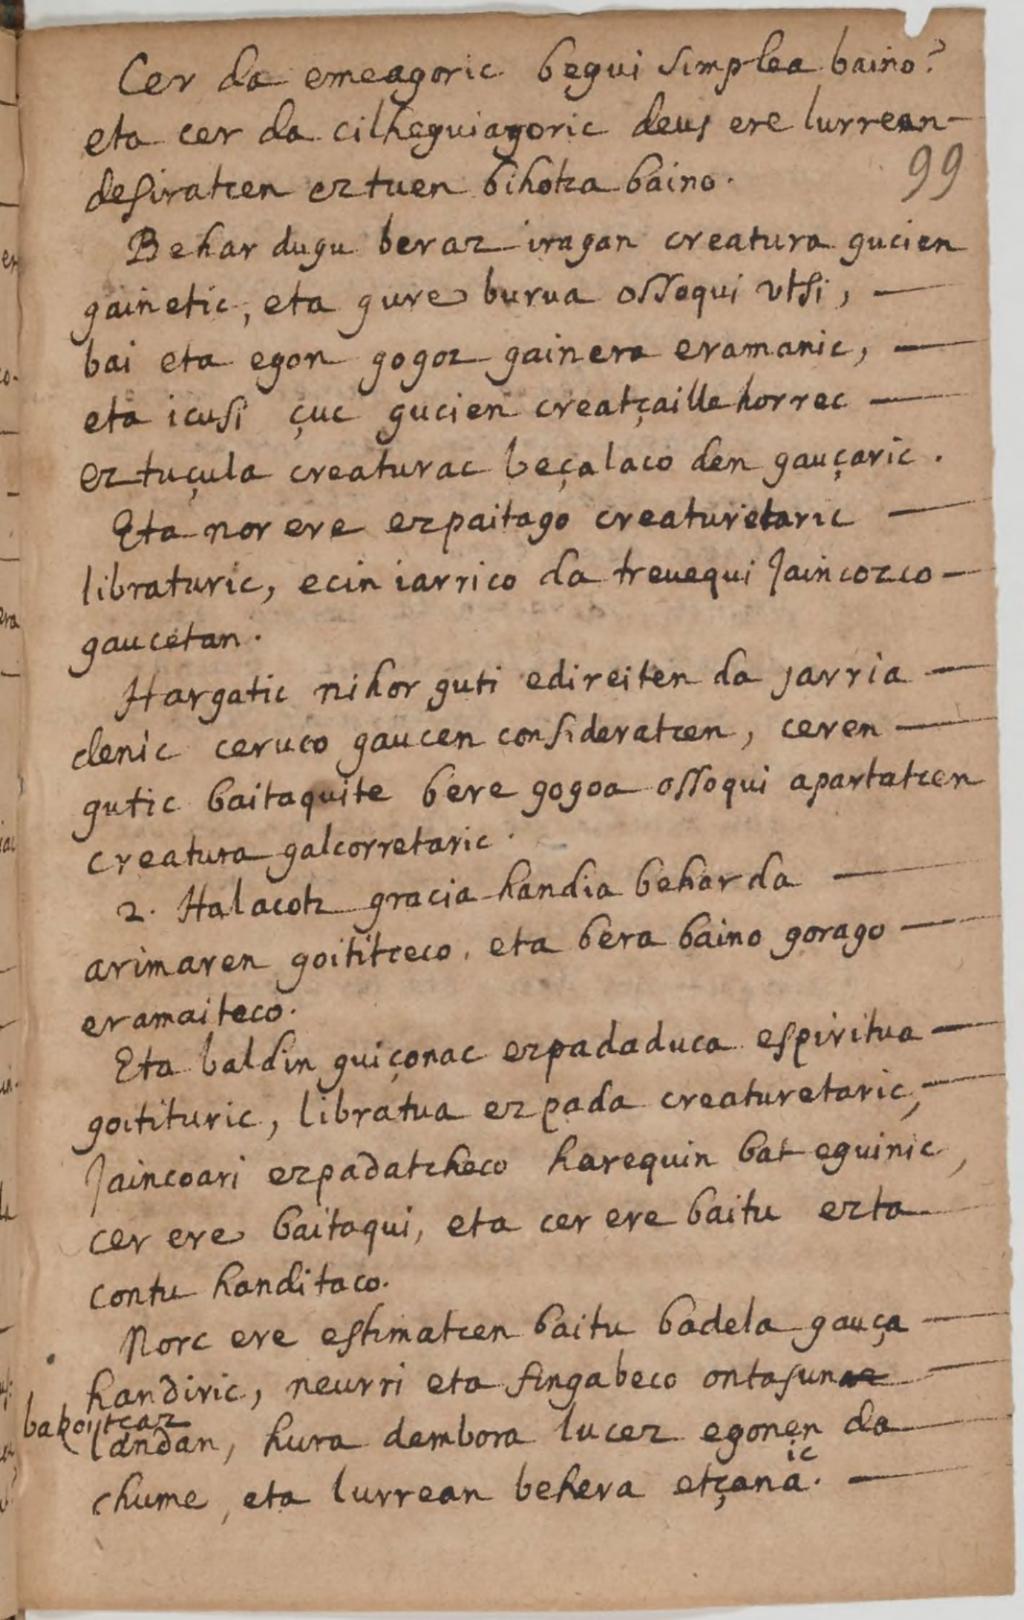 Cer da emeagoric begui simplea baino?
eta cer da cilheguiagoric deus ere lurrean
99
desiratcen eztuen bihotza baino.
Behar dugu beraz iragan creatura gucien
gainetic, eta gure burua ossoqui utsi,
bai eta egon gogoz gainera eramanic,
eta icusi çuc gucien creatçaille horrec
eztuçula creaturac beçalaco den gauçaric.
Eta nor ere ezpaitago creaturetaric
libraturic, ecin iarrico da trevequi Jaincozco
gaucetan.
Hargatic nihor guti edireiten da jarria
denic ceruco gaucen consideratcen, ceren
gutic baitaquite bere gogoa ossoqui apartatcen
creatura galcorretaric.
2. Halacotz gracia handia behar da
arimaren goititceco, eta bera baino gorago
eramaiteco.
Eta baldin guiçonac ezpadaduca espiritua
goitituric, libratua ezpada creaturetaric,
Jaincoari ezpadatcheco harequin bat eguinic,
cer ere baitaqui, eta cer ere baitu ezta
contu handitaco.
Norc ere estimatcen baitu badela gauça
handiric, neurri eta fingabeco ontasun
bakoitcaz
landan, hura dembora lucez egonen da
ic
chume, eta lurrean behera etçana.